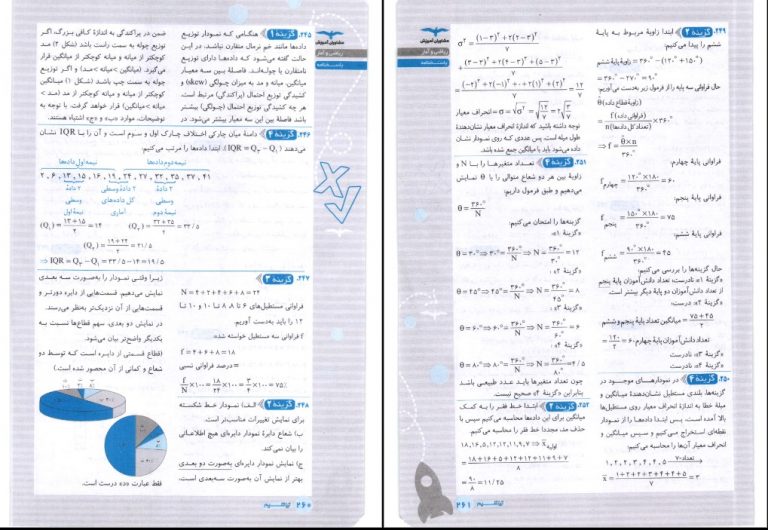 مشاوران آموزش
ریاضی و آمار
پاسخنامه
۲۴۵. گزینه ۱ هنگامی که نمودار توزیع
داده‌ها مانند خم نرمال متقارن نباشد، در این
حالت گفته می‌شود که داده‌ها دارای توزیع
نامتقارن یا چوله‌اند. فاصلهٔ بین سه معیار
میانگین، میانه و مد به میزان چولگی (skew)
کشیدگی توزیع احتمال (پراکندگی) مرتبط است.
هر چه کشیدگی توزیع احتمال (چولگی) بیشتر
باشد فاصلهٔ بین این سه معیار بیشتر می‌شود.
ضمن در پراکندگی به اندازهٔ کافی بزرگ، اگر
توزیع چوله به سمت راست باشد (شکل ۲) مد
کوچکتر از میانه و میانه کوچکتر از میانگین قرار
می‌گیرد. (میانگین > میانه > مد) و اگر توزیع
چوله به سمت چپ باشد (شکل ۱) میانگین
کوچکتر از میانه و میانه کوچکتر از مد (مد >
میانه > میانگین) قرار خواهد گرفت. با توجه به
توضیحات، موارد «ب» و «ج» اشتباه هستند.
۲۴۶. گزینه ۴ دامنهٔ میان چارکی اختلاف چارک اول و سوم است و آن را با IQR نشان
می‌دهند (IQR = Q۳ − Q۱). ابتدا داده‌ها را مرتب می‌کنیم.
نیمه اول داده‌ها نیمه دوم داده‌ها
۲ , ۶ , ۱۳ , ۱۵ , ۱۶ , ۱۹ , ۲۴ , ۲۷ , ۳۲ , ۳۵ , ۳۷ , ۴۱
۲ دادهٔ وسطی نیمهٔ اول
۲ دادهٔ وسطی کل داده‌های آماری
۲ دادهٔ وسطی نیمهٔ دوم
(Q۱) = (۱۳+۱۵)/۲ = ۱۴ (Q۳) = (۳۲+۳۵)/۲ = ۳۳/۵
(Q۲) = (۱۹+۲۴)/۲ = ۲۱/۵
⇒ IQR = Q۳ − Q۱ = ۳۳/۵ − ۱۴ = ۱۹/۵
۲۴۷. گزینه ۳
N = ۴+۲+۴+۶+۸ = ۲۴
فراوانی مستطیل‌های ۶ تا ۸، ۸ تا ۱۰ و ۱۰ تا
۱۲ را باید به‌دست آوریم.
f فراوانی سه مستطیل خواسته شده:
f = ۴+۶+۸ = ۱۸
درصد فراوانی نسبی =
f/N ×۱۰۰ = ۱۸/۲۴ ×۱۰۰ = ۳/۴ ×۱۰۰ = ۷۵٪
۲۴۸. گزینه ۲ الف) نمودار خط شکسته
برای نمایش تغییرات مناسب‌تر است.
ب) شعاع دایرهٔ نمودار دایره‌ای هیچ اطلاعاتی
را بیان نمی‌کند.
ج) نمایش نمودار دایره‌ای به‌صورت دو بعدی
بهتر از نمایش آن به‌صورت سه‌بعدی است،
زیرا وقتی نمودار را به‌صورت سه بعدی
نمایش می‌دهیم، قسمت‌هایی از دایره دورتر و
قسمت‌هایی از آن نزدیک‌تر به‌نظر می‌رسند.
در نمایش دو بعدی، سهم قطاع‌ها نسبت به
یکدیگر واضح‌تر بیان می‌شود.
(قطاع قسمتی از دایره است که توسط دو
شعاع و کمانی از آن محصور شده است.)
فقط عبارت «د» درست است.
۲۶۰
مشاوران آموزش
ریاضی و آمار
پاسخنامه
۲۴۹. گزینه ۲ ابتدا زاویهٔ مربوط به پایهٔ
ششم را پیدا می‌کنیم:
زاویهٔ پایهٔ ششم = ۳۶۰° − (۱۲۰° + ۱۵۰°)
= ۳۶۰° − ۲۷۰° = ۹۰°
حال فراوانی سه پایه را از فرمول زیر به‌دست می‌آوریم.
(زاویهٔ قطاع داده) θ
= f(فراوانی داده)/n(تعداد کل داده‌ها) × ۳۶۰°
⇒ f = (θ×n)/۳۶۰°
فراوانی پایهٔ چهارم:
f چهارم = (۱۲۰°×۱۸۰)/۳۶۰° = ۶۰
فراوانی پایهٔ پنجم:
f پنجم = (۱۵۰°×۱۸۰)/۳۶۰° = ۷۵
فراوانی پایهٔ ششم:
f ششم = (۹۰°×۱۸۰)/۳۶۰° = ۴۵
حال گزینه‌ها را بررسی می‌کنیم:
گزینهٔ «۱»: نادرست، تعداد دانش‌آموزان پایهٔ پنجم
از تعداد دانش‌آموزان دو پایهٔ دیگر بیشتر است.
گزینهٔ «۲»: درست:
میانگین تعداد پایهٔ پنجم و ششم = (۷۵+۴۵)/۲
تعداد دانش‌آموزان پایهٔ چهارم = ۶۰ = ۱۲۰/۲ =
گزینهٔ «۳»: نادرست
گزینهٔ «۴»: نادرست
۲۵۰. گزینه ۴ در نمودارهای موجود در
گزینه‌ها، بلندی مستطیل نشان‌دهندهٔ میانگین و
میلهٔ خطا به اندازهٔ انحراف معیار روی مستطیل‌ها
بالا آمده است، پس ابتدا داده‌ها را از نمودار
نقطه‌ای استخراج می‌کنیم و سپس میانگین و
انحراف معیار آن‌ها را محاسبه می‌کنیم:
۱, ۲, ۲, ۳, ۴, ۴, ۵ تعداد=۷
x̄ = (۱+۲+۲+۳+۴+۴+۵)/۷ = ۳
σ² = ((۱−۳)² + ۲(۲−۳)²)/۷
+ ((۳−۳)² + ۲(۴−۳)² + (۵−۳)²)/۷
= ((−۲)² + ۲(−۱)² + ۰ + ۲(۱)² + (۲)²)/۷ = ۱۲/۷
انحراف معیار = σ = √σ² = √(۱۲/۷) = ۲√(۳/۷)
توجه داشته باشید که اندازهٔ انحراف معیار نشان‌دهندهٔ
طول میله است. پس عددی که روی نمودار نشان
داده می‌شود باید با میانگین جمع شده باشد.
۲۵۱. گزینه ۴ تعداد متغیرها را با N و
زاویهٔ بین هر دو شعاع متوالی را با θ نمایش
می‌دهیم و طبق فرمول داریم:
θ = ۳۶۰°/N
گزینه‌ها را امتحان می‌کنیم:
گزینهٔ «۱»:
θ = ۳۰° ⇒ ۳۰° = ۳۶۰°/N ⇒ N = ۳۶۰°/۳۰° = ۱۲
گزینهٔ «۲»:
θ = ۴۵° ⇒ ۴۵° = ۳۶۰°/N ⇒ N = ۳۶۰°/۴۵° = ۸
گزینهٔ «۳»:
θ = ۶۰° ⇒ ۶۰° = ۳۶۰°/N ⇒ N = ۳۶۰°/۶۰° = ۶
گزینهٔ «۴»:
θ = ۸۰° ⇒ ۸۰° = ۳۶۰°/N ⇒ N = ۳۶۰°/۸۰° = ۴/۵
چون تعداد متغیرها باید عدد طبیعی باشد
بنابراین «گزینهٔ ۴» صحیح نیست.
۲۵۲. گزینه ۲ ابتدا خط فقر را به کمک
میانگین برای این داده‌ها محاسبه می‌کنیم سپس با
حذف مد، مجددا خط فقر را محاسبه می‌کنیم.
۱۸,۱۶,۵,۱۲,۱۲,۱۱,۹,۷ ⇒ x̄ اولیه
= (۱۸+۱۶+۵+۱۲+۱۲+۱۱+۹+۷)/۸
= ۹۰/۸ = ۱۱/۲۵
۲۶۱